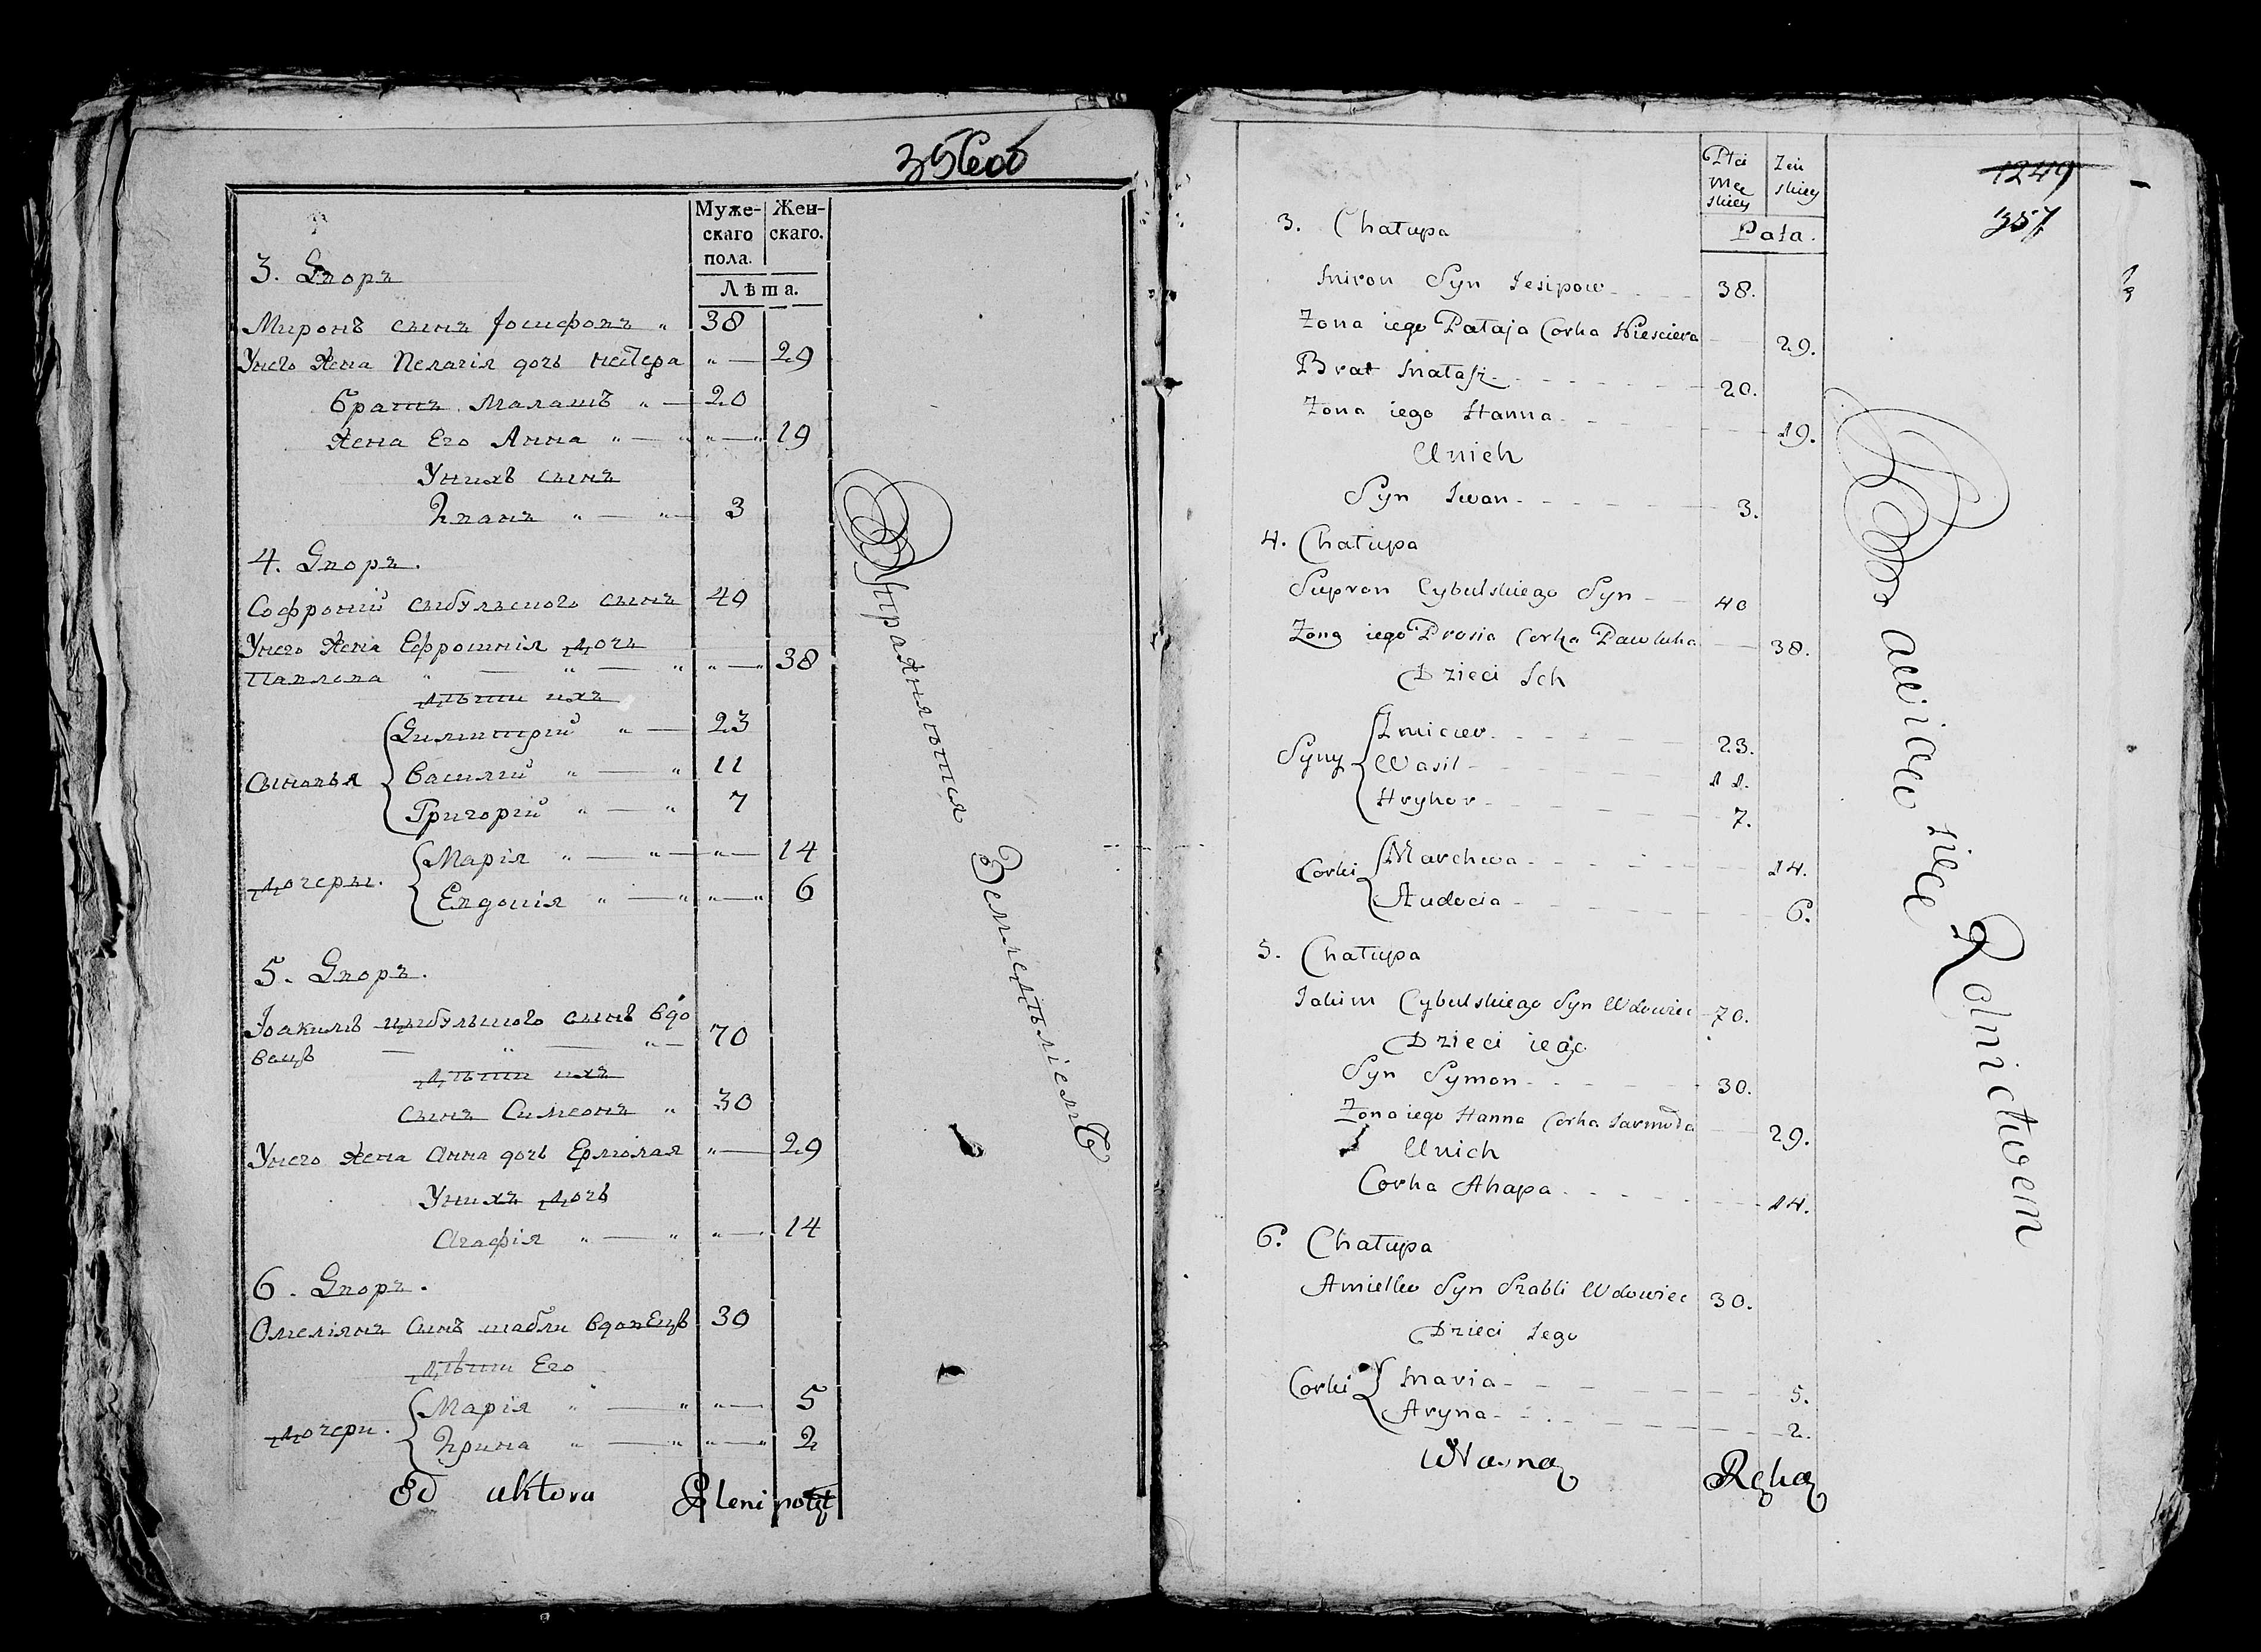 356об
Муже-
скаго
пола.
Жен-
скаго.
Лѣта.
3. Дворъ
Миронъ сынъ Іосифовъ „ 38
Унего жена Пелагія дочь нестера „ — 29
братъ Малашъ „ — 20
жена Его Анна „ — „ „ — „ 19
Унихъ сынъ
Иванъ „ — „ — 3
4. Дворъ.
Софроній сыбульского сынъ 40
Унего жена Ефросинія дочь
Павлова „ — „ — „ „ — „ 38
дѣти ихъ
Димитрій „ — 23
Сыновья Василій „ — „ 11
Григорій „ — „ 7
Марія „ — „ — „ — 14
дочеры. Евдокія „ — „ „ — „ 6
5. Дворъ.
Іоакимъ цыбульского сынъ вдо
вецъ — „ — „ — 70
дѣти ихъ
сынъ Симеонъ „ 30
Унего жена Анна дочь Ермолая „ — 29
Унихъ дочь
Агафія „ — „ „ — 14
6. Дворъ.
Омеліянъ сынъ шабли вдовецъ 30
дѣти Его
Марія „ — „ „ — 5
дочери. Ирина „ — „ „ — „ 2
Упражняется Земледѣліемъ
Od aktora Plenipotęt
1249
357
Płci
Mę
skiey
Żeń
skiey
Lata.
3. Chałupa
Miron Syn Iesipow 38.
Żona iego Pałaja Corka Niesciera 29.
Brat Małasz 20.
Żona iego Hanna 19.
Unich
Syn Iwan 3.
4. Chałupa
Supron Cybulskiego Syn 40
Żona iego Prosia Corka Pawluka 38.
Dzieci Ich
Dmicier 23.
Syny Wasil 11.
Hryhor 7.
Corki Marchwa 14.
Audocia 6.
5. Chałupa
Iakim Cybulskiego Syn Wdowiec 70.
Dzieci iego
Syn Symon 30.
Żona iego Hanna Corka Iarmoła 29.
Unich
Corka Ahapa 14.
6. Chałupa
Amielko Syn Szabli Wdowiec 30.
Dzieci Iego
Corki Maria 5.
Aryna 2.
Zabawiaw sięę Rolnictwem
Własną Ręką